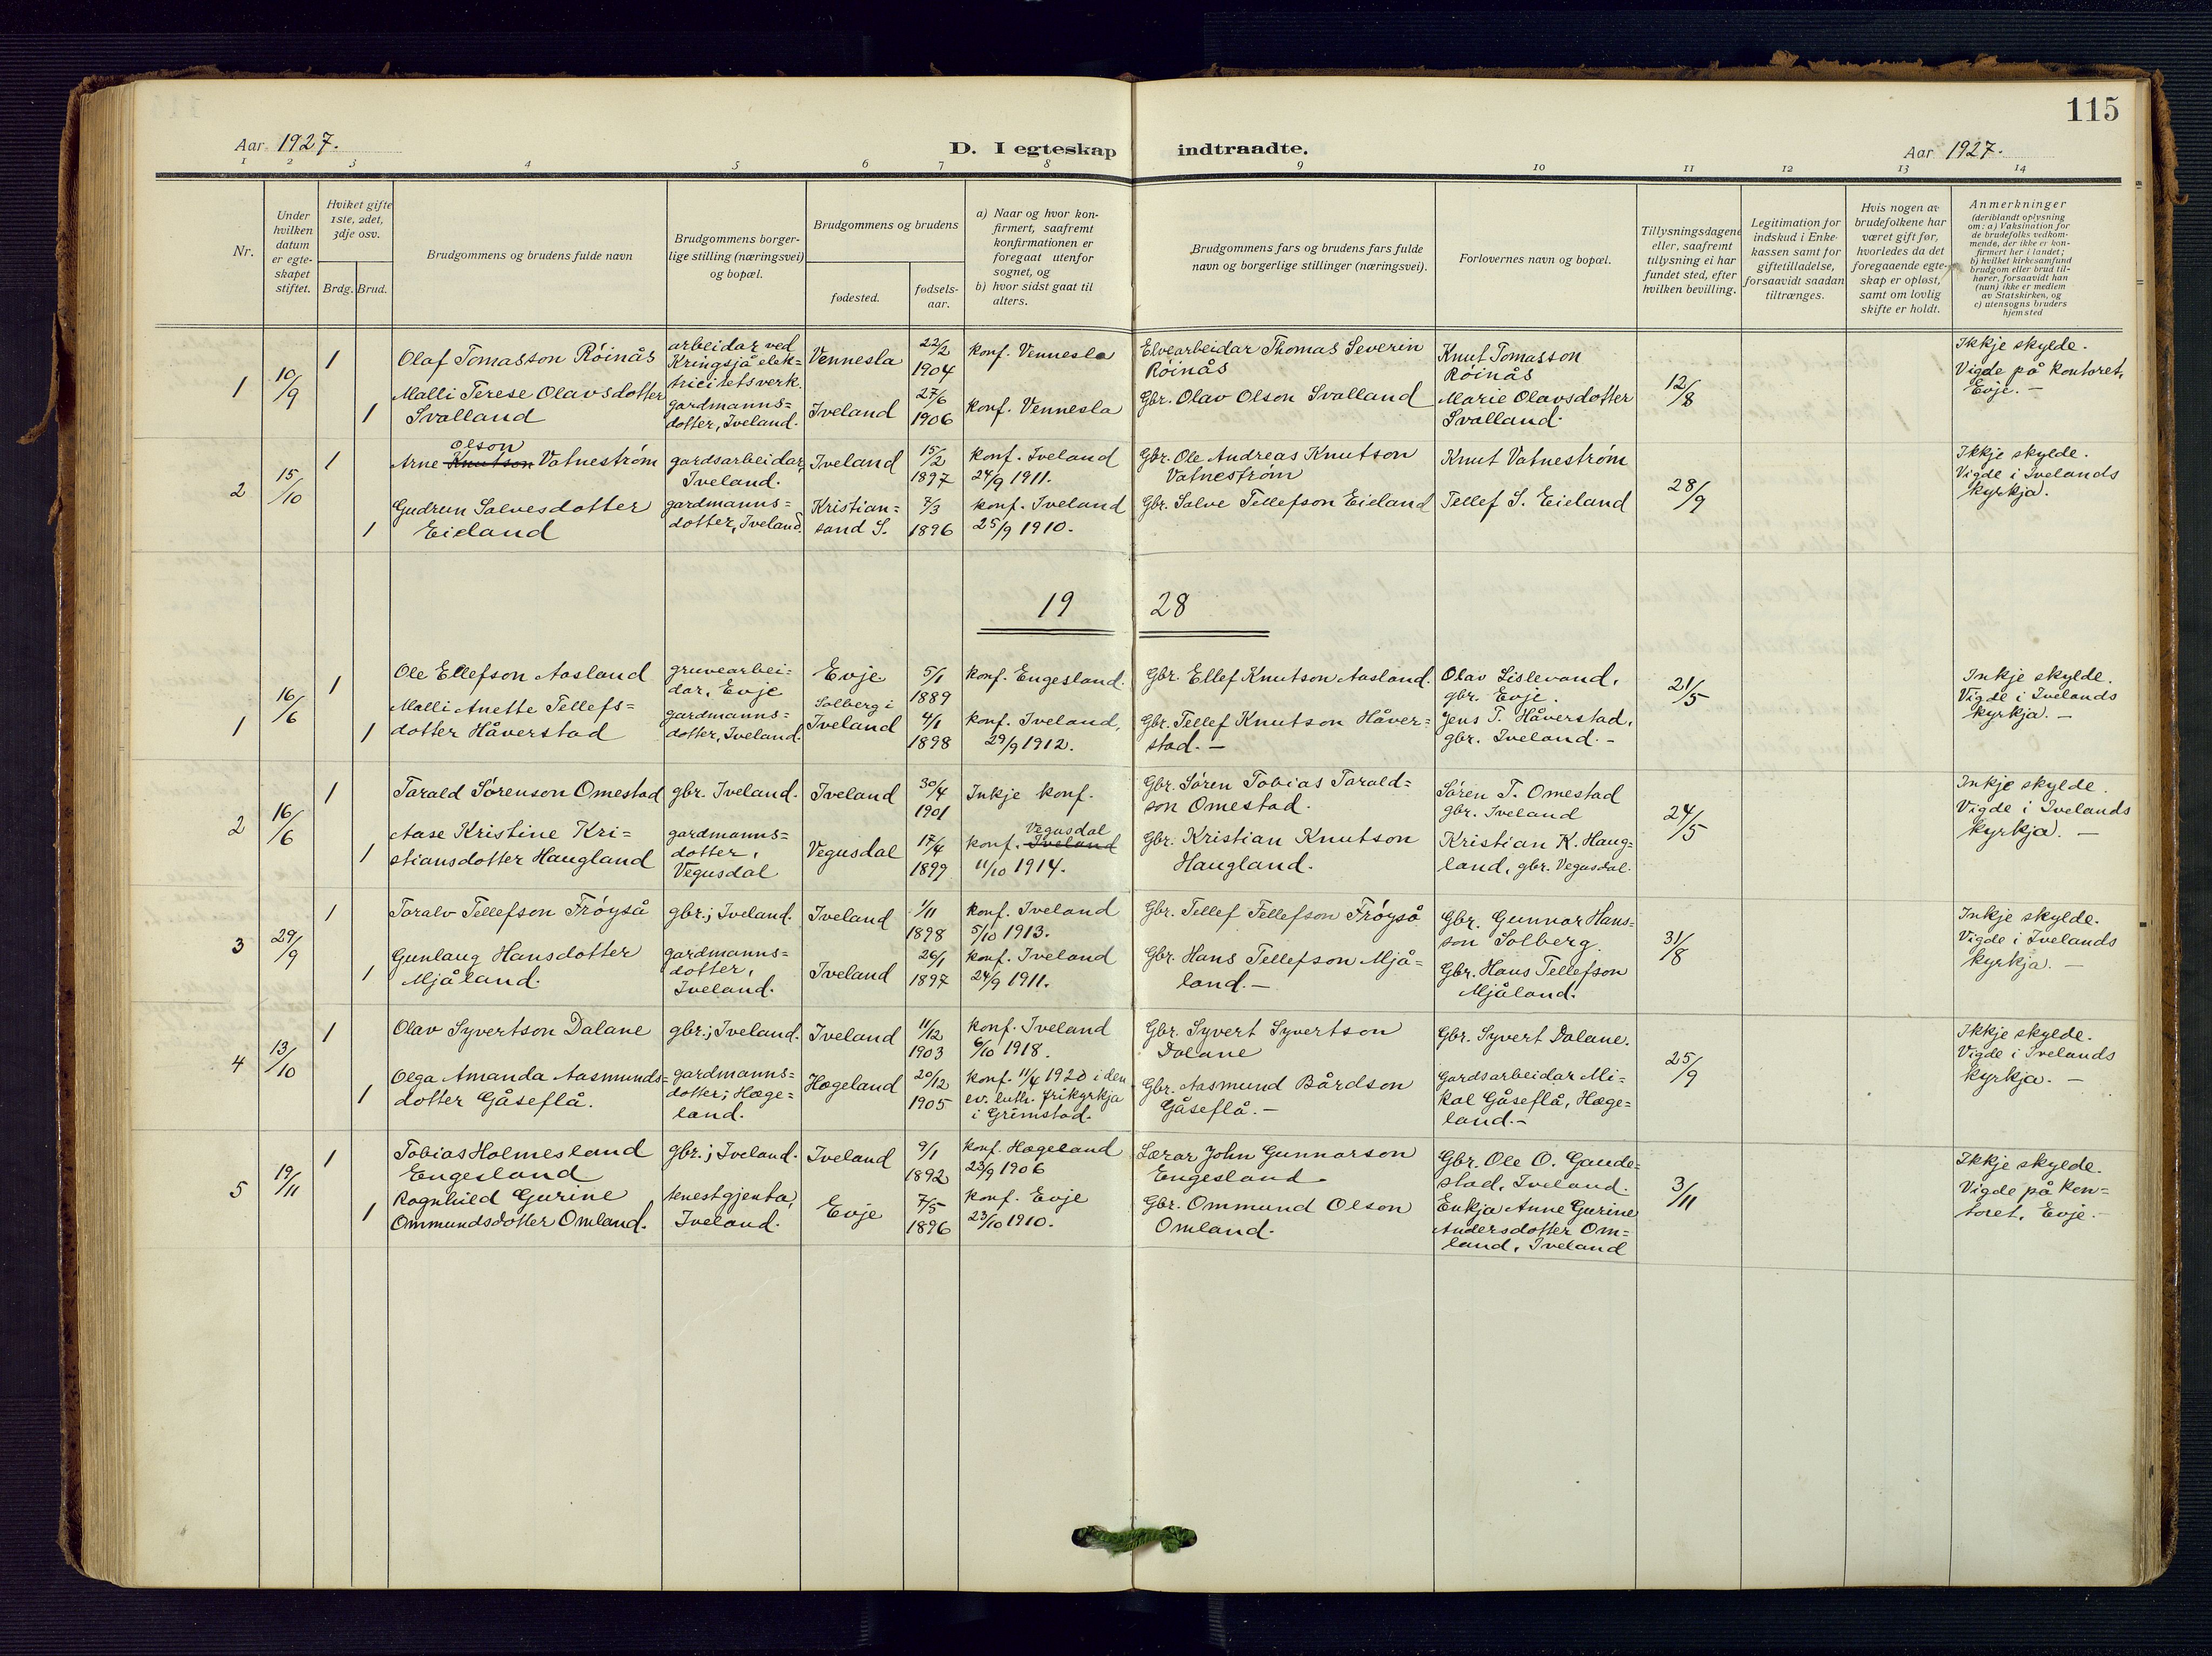 115
Aar 1927.
D. I egteskap indtraadte.
Aar 1927.
1 2 3 4 5 6 7 8 9 10 11 12 13 14
Nr.
Under
hvilken
datum
er egte-
skapet
stiftet.
Hviket gifte
1ste, 2det,
3dje osv.
Brdg. Brud.
Brudgommens og brudens fulde navn
Brudgommens borger-
lige stilling (næringsvei)
og bopæl.
Brudgommens og brudens
fødested.
fødsels-
aar.
a) Naar og hvor kon-
firmert, saafremt
konfirmationen er
foregaat utenfor
sognet, og
b) hvor sidst gaat til
alters.
Brudgommens fars og brudens fars fulde
navn og borgerlige stillinger (næringsvei).
Forlovernes navn og bopæl.
Tillysningsdagene
eller, saafremt
tillysning ei har
fundet sted, efter
hvilken bevilling.
Legitimation for
indskud i Enke-
kassen samt for
giftetilladelse,
forsaavidt saadan
tiltrænges.
Hvis nogen av
brudefolkene har
været gift før,
hvorledes da det
foregaaende egte-
skap er opløst,
samt om lovlig
skifte er holdt.
Anmerkninger
(deriblandt oplysning
om: a) Vaksination for
de brudefolks vedkom-
mende, der ikke er kon-
firmert her i landet;
b) hvilket kirkesamfund
brudgom eller brud til-
hører, forsaavidt han
(hun) ikke er medlem
av Statskirken, og
c) utensogns bruders
hjemsted
1
10/9
1
Olaf Tomasson Röinås
arbeidar ved
Kringsjå elek=
tricitetsverk.
Vennesla
22/2
1904
konf. Vennesla
Elvearbeidar Thomas Severin
Röinås
Knut Tomasson
Röinås
12/8
Ikkje skylde.
Vigde på kontoret,
Evje. —
1
Malli Terese Olavsdotter
Svalland
gardmanns=
dotter, Iveland.
Iveland
27/6
1906
konf. Vennesla
Gbr. Olav Olson Svalland
Marie Olavsdotter
Svalland.
2
15/10
1
Olson
Arne Knutson Vatneström
gardsarbeidar,
Iveland.
Iveland
15/2
1897
konf. Iveland
24/9 1911.
Gbr. Ole Andreas Knutson
Vatneström
Knut Vatneström
28/9
Ikkje skylde.
Vigde i Ivelands
kyrkja.
1
Gudrun Salvesdotter
Eieland
gardmanns=
dotter, Iveland.
Kristian=
sand S.
7/3
1896
konf. Iveland
25/9 1910.
Gbr. Salve Tellefson Eieland
Tellef S. Eieland
19 28
1
16/6
1
Ole Ellefson Aasland
gruvearbei=
dar, Evje
Evje
5/1
1889
konf. Engesland.
Gbr. Ellef Knutson Aasland.
Olav Lislevand,
gbr. Evje.
21/5
Inkje skylde.
Vigde i Ivelands
kyrkja. —
1
Malli Anette Tellefs=
dotter Håverstad
gardmanns=
dotter, Iveland.
Solberg i
Iveland
4/1
1898
konf. Iveland,
29/9 1912.
Gbr. Tellef Knutson Håver=
stad. —
Jens T. Håverstad,
gbr. Iveland. —
2
16/6
1
Tarald Sörenson Omestad
gbr. Iveland.
Iveland
30/4
1901
Inkje konf.
Gbr. Sören Tobias Tarald=
son Omestad.
Sören T. Omestad
gbr. Iveland
24/5
Inkje skylde.
Vigde i Ivelands
kyrkja. —
1
Aase Kristine Kri=
stiansdotter Haugland
gardmanns=
dotter,
Vegusdal
Vegusdal
17/4
1899
Vegusdal
konf. Iveland
11/10 1914.
Gbr. Kristian Knutson
Haugland.
Kristian K. Haug=
land, gbr. Vegusdal.
3
29/9
1
Taralv Tellefson Fröyså
gbr.; Iveland.
Iveland
1/11
1898
konf. Iveland
5/10 1913.
Gbr. Tellef Tellefson Fröyså
Gbr. Gunnar Hans=
son Solberg.
31/8
Inkje skylde.
Vigde i Ivelands
kyrkja. —
1
Gunlaug Hansdotter
Mjåland.
gardmanns=
dotter,
Iveland.
Iveland
26/1
1897
konf. Iveland
24/9 1911.
Gbr. Hans Tellefson Mjå=
land. —
Gbr. Hans Tellefson
Mjåland.
4
13/10
1
Olav Syvertson Dalane
gbr.; Iveland.
Iveland
11/12
1903
konf. Iveland
6/10 1918.
Gbr. Syvert Syvertson
Dalane
Gbr. Syvert Dalane.
25/9
Ikkje skylde.
Vigde i Ivelands
kyrkja. —
1
Olga Amanda Aasmunds=
dotter Gåseflå.
gardmanns=
dotter; Hæge=
land.
Hægeland
20/12
1905
konf. 11/4 1920 i den
ev. luth. frikyrkja
i Grimstad.
Gbr. Aasmund Bårdson
Gåseflå. —
Gardsarbeidar Mi=
kal Gåseflå, Hæge=
land. —
5
19/11
1
Tobias Holmesland
Engesland
gbr.; Iveland.
Iveland
9/1
1892
konf. Hægeland
23/9 1906
Lærar John Gunnarson
Engesland.
Gbr. Ole O. Gaude=
stad, Iveland.
3/11
Ikkje skylde.
Vigde på kon=
toret, Evje. —
1
Ragnhild Gurine
Ommundsdotter Omland.
tenestgjenta,
Iveland.
Evje
7/5
1896
konf. Evje
23/10 1910.
Gbr. Ommund Olson
Omland.
Enkja Anne Gurine
Andersdotter Om=
land, Iveland